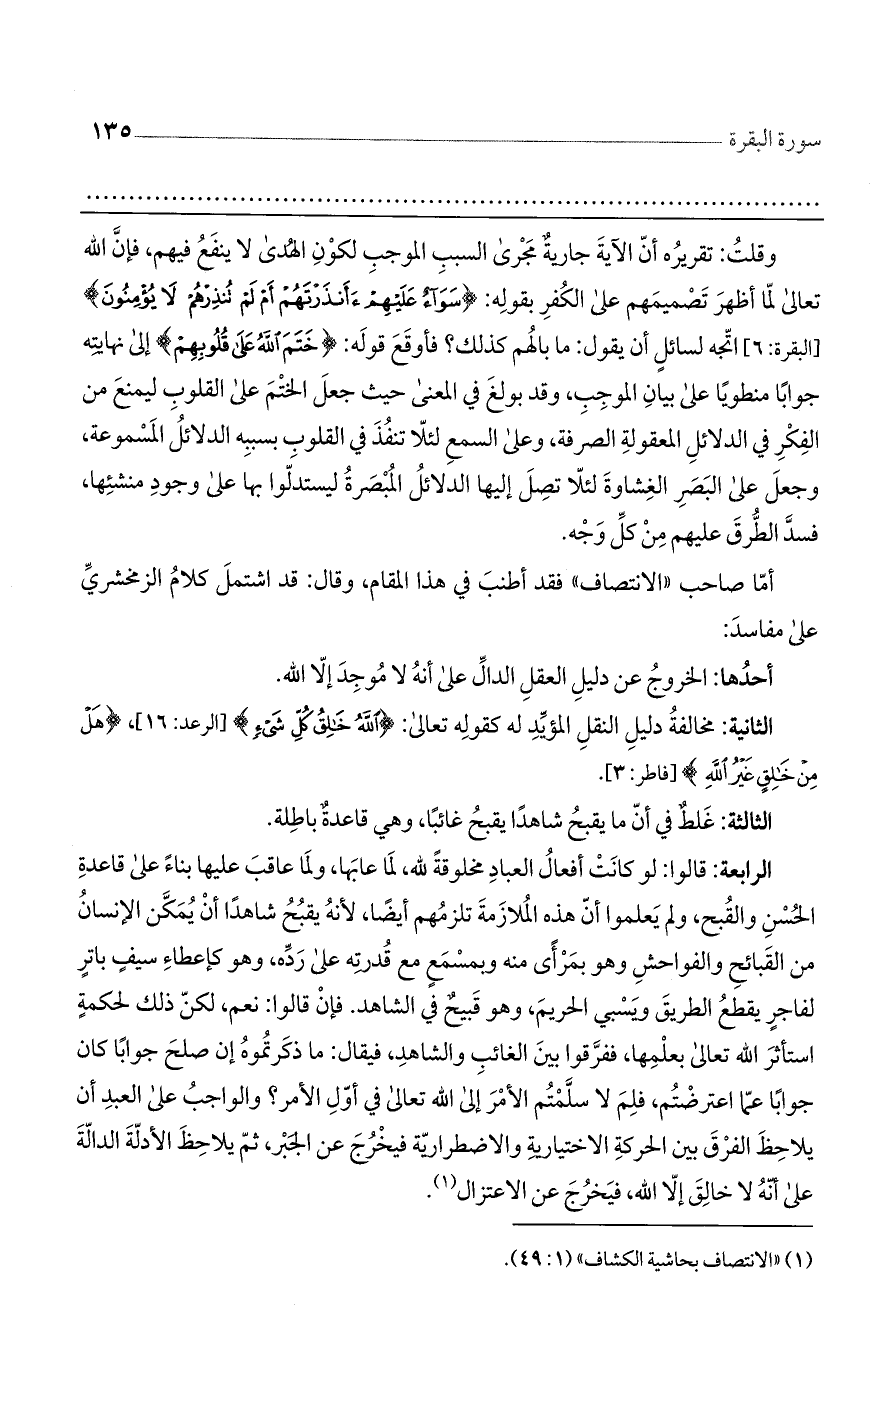 سورة البقرة ١٣٥
وقلتُ: تقريرُه أنّ الآيةَ جاريةٌ مَجْرىٰ السببِ الموجبِ لكوْنِ الهُدىٰ لا ينفَعُ فيهم، فإنَّ الله
تعالىٰ لمّا أظهرَ تَصْميمَهم علىٰ الكُفرِ بقولِه: ﴿سَوَآءٌ عَلَيْهِمْ ءَأَنذَرْتَهُمْ أَمْ لَمْ نُنذِرْهُمْ لَا يُؤْمِنُونَ﴾
[البقرة: ٦] اتّجه لسائلٍ أن يقول: ما بالُهم كذلك؟ فأوقَعَ قولَه: ﴿خَتَمَ ٱللَّهُ عَلَىٰ قُلُوبِهِمْ﴾ إلىٰ نهايتِه
جوابًا منطويًا علىٰ بيانِ الموجِبِ، وقد بولغَ في المعنىٰ حيث جعلَ الختْمَ علىٰ القلوبِ ليمنعَ من
الفِكْرِ في الدلائلِ المعقولةِ الصرفة، وعلىٰ السمعِ لئلّا تنفُذَ في القلوبِ بسببِه الدلائلُ المَسْموعة،
وجعلَ علىٰ البَصَرِ الغِشاوةَ لئلّا تصِلَ إليها الدلائلُ المُبْصَرةُ ليستدلّوا بها علىٰ وجودِ منشئِها،
فسدَّ الطُّرقَ عليهم مِنْ كلِّ وَجْه.
أمّا صاحب «الانتصاف» فقد أطنبَ في هذا المقام، وقال: قد اشتملَ كلامُ الزمخشريِّ
علىٰ مفاسدَ:
أحدُها: الخروجُ عن دليلِ العقلِ الدالِّ علىٰ أنهُ لا مُوجِدَ إلّا الله.
الثانية: مخالفةُ دليلِ النقلِ المؤيِّدِ له كقولِه تعالىٰ: ﴿ٱللَّهُ خَـٰلِقُ كُلِّ شَىْءٍ﴾ [الرعد: ١٦]، ﴿هَلْ
مِنْ خَـٰلِقٍ غَيْرُ ٱللَّهِ﴾ [فاطر: ٣].
الثالثة: غَلطٌ في أنّ ما يقبحُ شاهدًا يقبحُ غائبًا، وهي قاعدةٌ باطِلة.
الرابعة: قالوا: لو كانَتْ أفعالُ العبادِ مخلوقةً لله، لَما عابَها، ولَما عاقبَ عليها بناءً علىٰ قاعدةِ
الحُسْنِ والقُبح، ولم يَعلموا أنّ هذه المُلازمةَ تلزمُهم أيضًا، لأنهُ يقبُحُ شاهدًا أنْ يُمَكَّن الإنسانُ
من القَبائحِ والفواحشِ وهو بمَرْأًى منه وبمسْمَعٍ مع قُدرتِه علىٰ رَدِّه، وهو كإعطاءِ سيفٍ باترٍ
لفاجرٍ يقطعُ الطريقَ ويَسْبي الحريمَ، وهو قَبيحٌ في الشاهد. فإنْ قالوا: نعم، لكنّ ذلك لحكمةٍ
استأثرَ الله تعالىٰ بعلْمِها، ففرَّقوا بينَ الغائبِ والشاهدِ، فيقال: ما ذكَرتمُوهُ إن صلحَ جوابًا كان
جوابًا عمّا اعترضْتُم، فلِمَ لا سلَّمْتُم الأمْرَ إلىٰ الله تعالىٰ في أوّلِ الأمر؟ والواجبُ علىٰ العبدِ أن
يلاحِظَ الفرْقَ بين الحركةِ الاختياريةِ والاضطراريّة فيخْرُجَ عن الجَبْر، ثمّ يلاحِظَ الأدلّةَ الدالّةَ
علىٰ أنّهُ لا خالِقَ إلّا الله، فيَخرُجَ عن الاعتزال(١).
(١) «الانتصاف بحاشية الكشاف» (١: ٤٩).